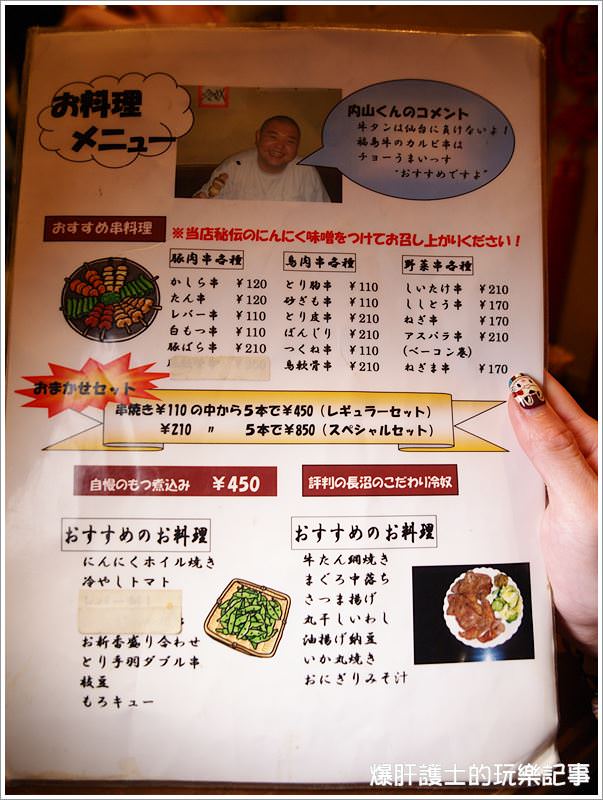 お料理
メニュー
内山くんのコメント
牛タンは仙台に負けないよ！
福島牛のカルビ串は
チョーうまいっす
"おすすめですよ"
おすすめ串料理
※当店秘伝のにんにく味噌をつけてお召し上がりください！
豚肉串各種
かしら串 ￥120
たん串 ￥120
レバー串 ￥110
白もつ串 ￥110
豚ばら串 ￥210
鳥肉串各種
とり胸串 ￥110
砂ぎも串 ￥110
とり皮串 ￥210
ぼんじり ￥210
つくね串 ￥110
鳥軟骨串 ￥210
野菜串各種
しいたけ串 ￥210
ししとう串 ￥170
ねぎ串 ￥170
アスパラ串 ￥210
(ベーコン巻)
ねぎま串 ￥170
おまかせセット
串焼き￥110の中から５本で￥450（レギュラーセット）
￥210 〃 ５本で￥850（スペシャルセット）
自慢のもつ煮込み ￥450
評判の長沼のこだわり冷奴
おすすめのお料理
にんにくホイル焼き
冷やしトマト
お新香盛り合わせ
とり手羽ダブル串
枝豆
もろキュー
おすすめのお料理
牛たん網焼き
まぐろ中落ち
さつま揚げ
丸干しいわし
油揚げ納豆
いか丸焼き
おにぎりみそ汁
爆肝護士的玩樂記事